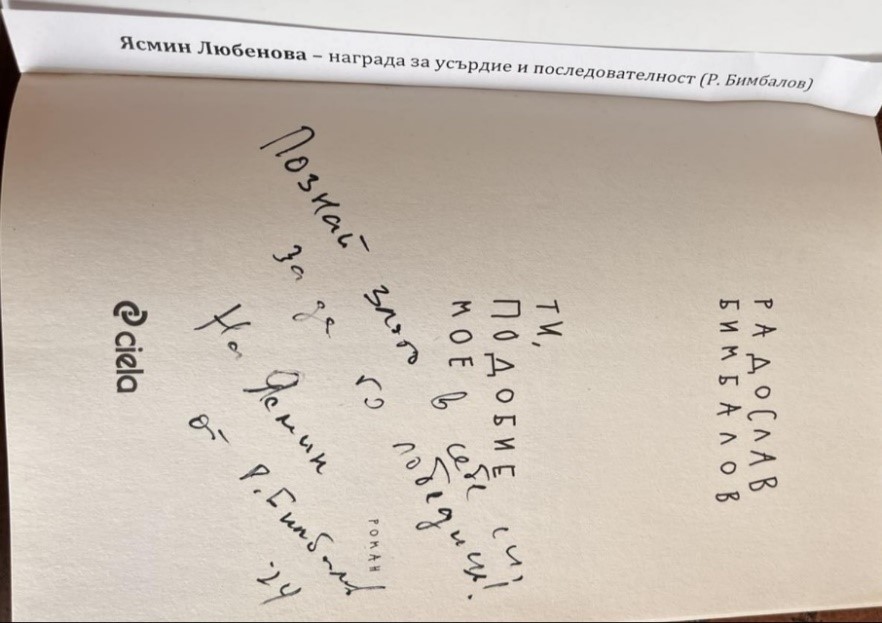 Ясмин Любенова – награда за усърдие и последователност (Р. Бимбалов)
РАДОСЛАВ
БИМБАЛОВ
ТИ,
ПОДОБИЕ
МОЕ
Познай злото в себе си,
за да го победиш!
На Ясмин
от Р. Бимбалов
-24
РОМАН
ciela